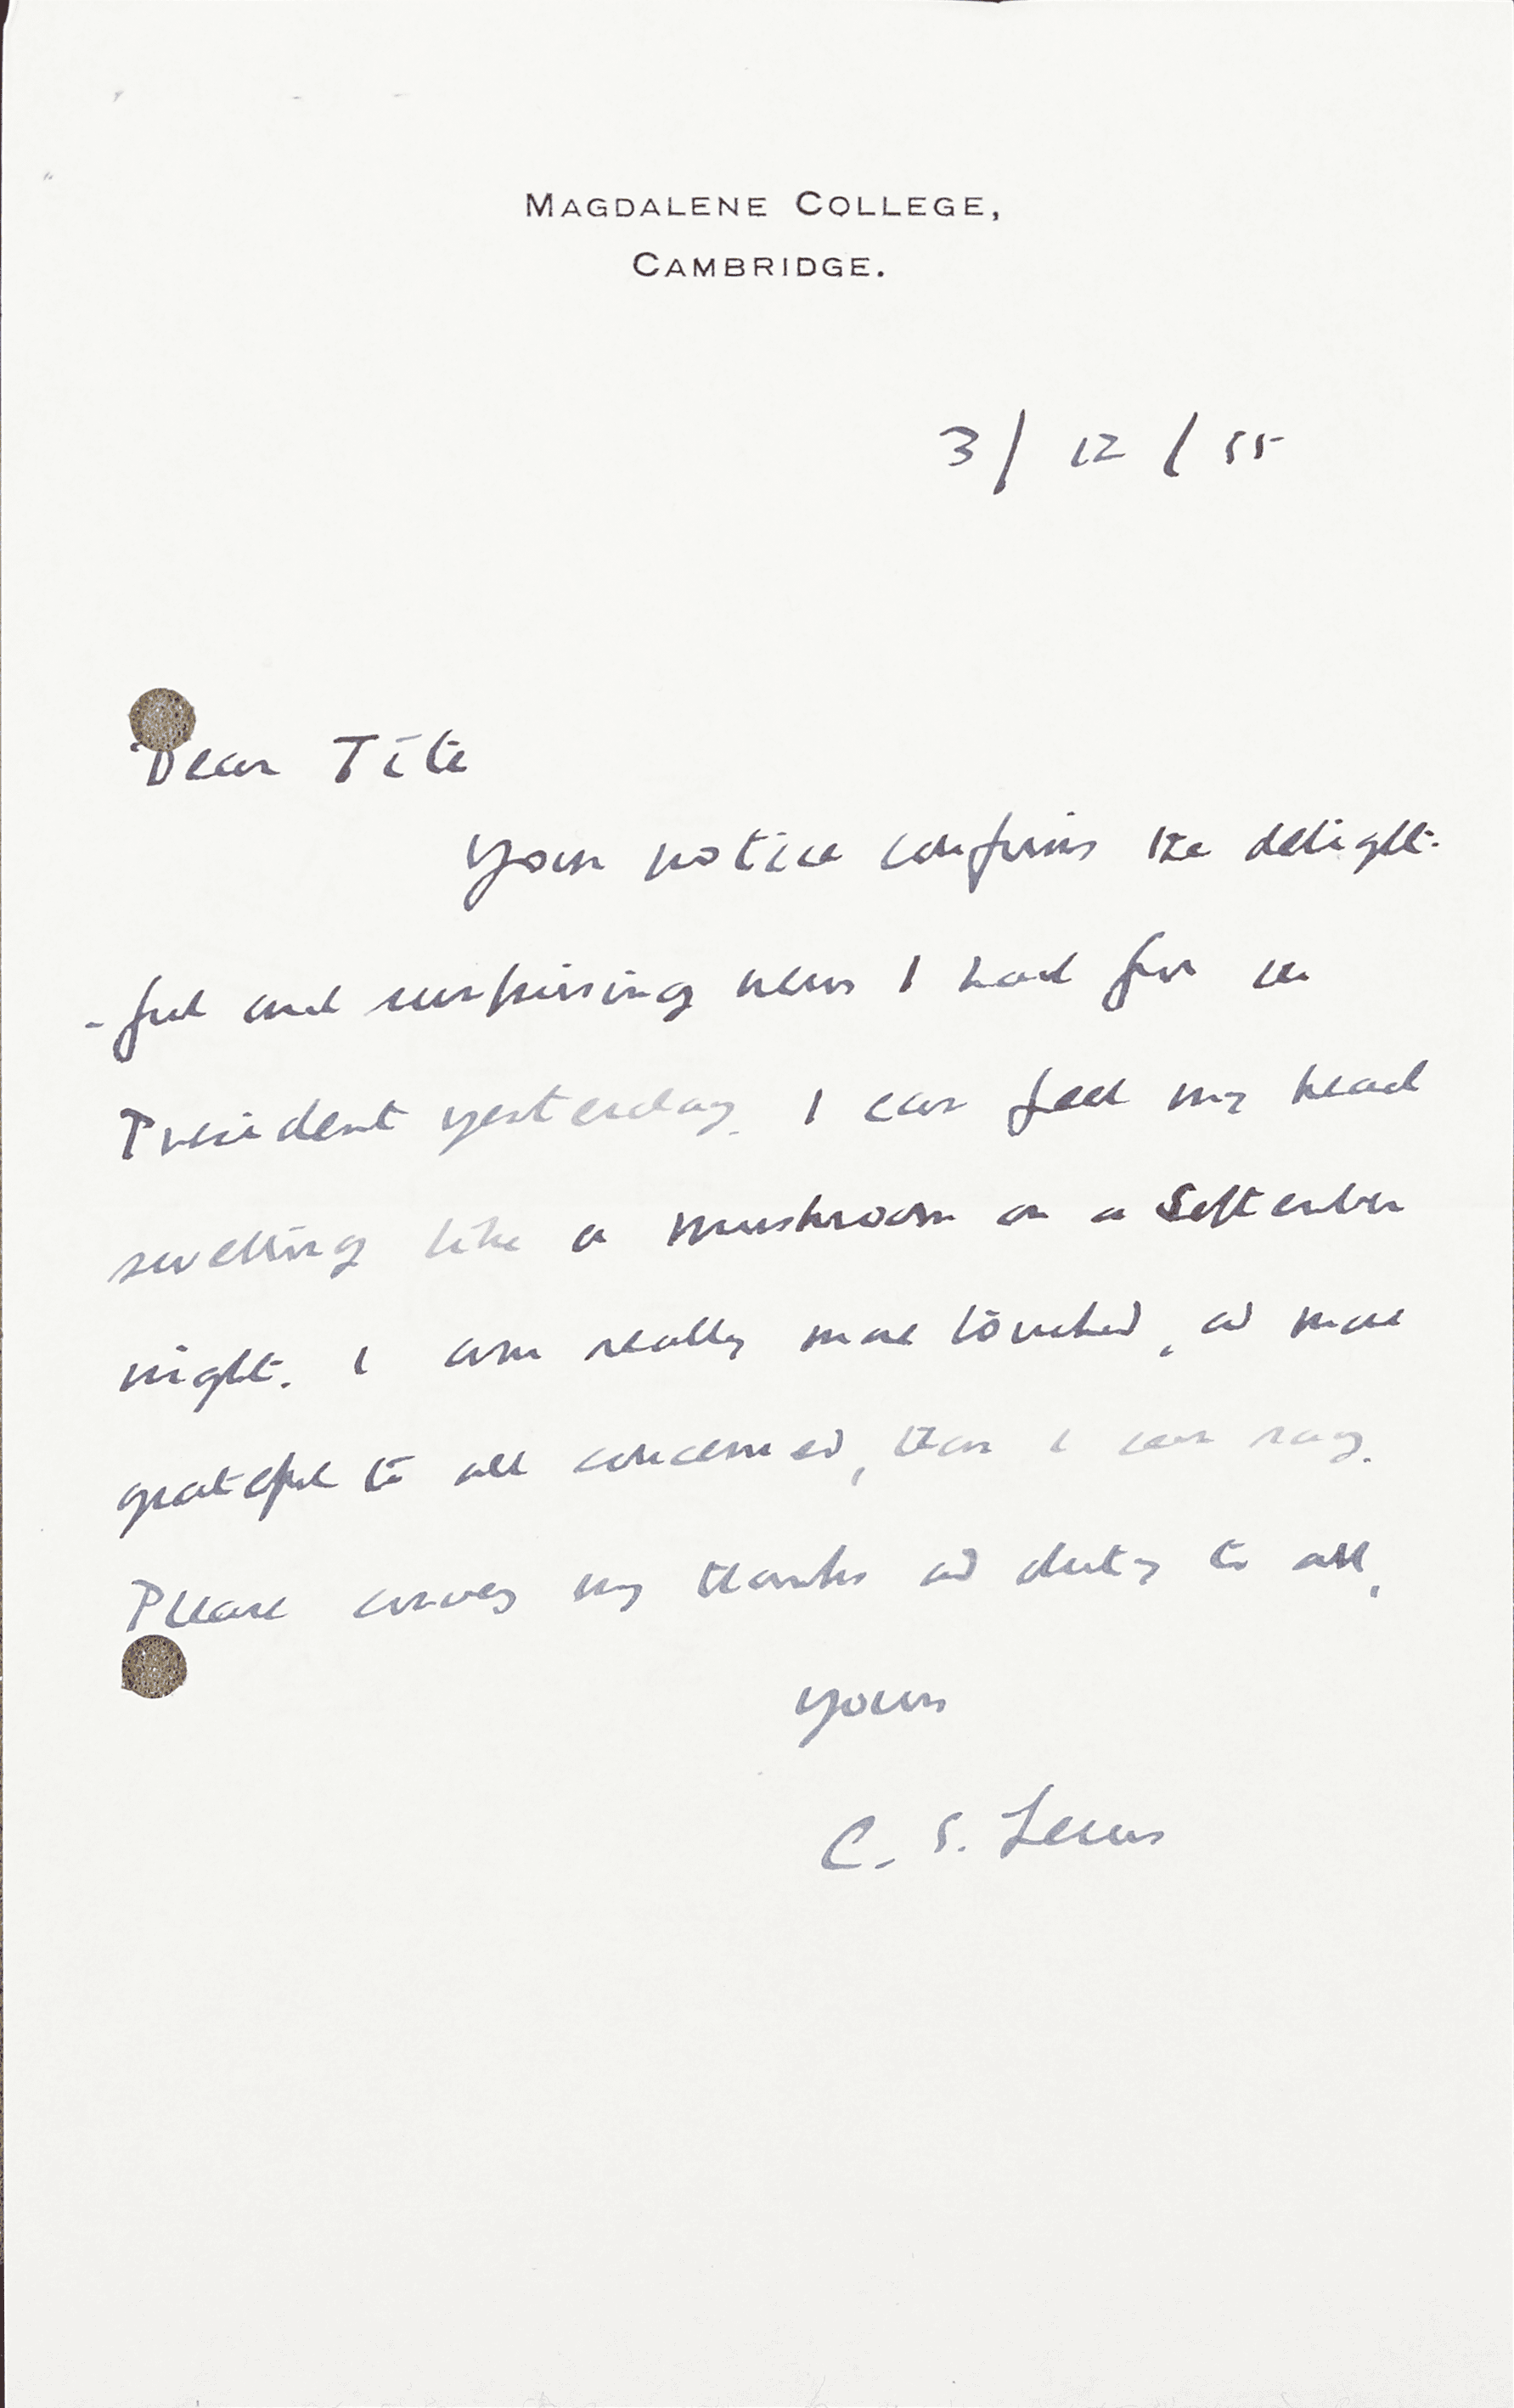 MAGDALENE COLLEGE,
CAMBRIDGE.
3/12/55
Dear Tite
Your notice confirms the delight-
-ful and surprising news I had fr. the
President yesterday. I can feel my head
swelling like a mushroom on a September
night. I am really more touched, and more
grateful to all concerned, than I can say.
Please convey my thanks and duty to all.
Yours
C. S. Lewis